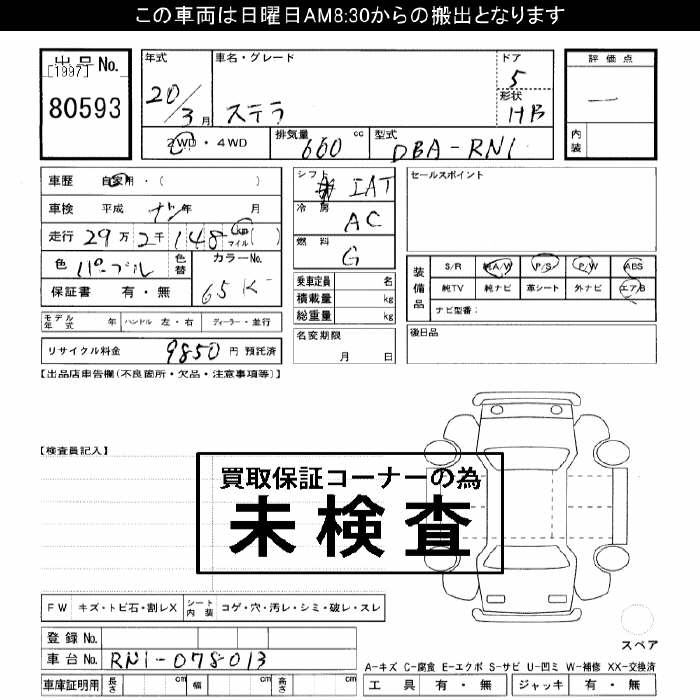 この車両は日曜日AM8:30からの搬出となります
出品No.
[1997]
80593
年式
20/3月
車名・グレード
ステラ
ドア
5
形状
HB
2WD・4WD
排気量
660 cc
型式
DBA-RN1
評価点
—
内装
車歴 自家用・( )
車検 平成 ナシ年 月
走行 29万2千148 km マイル ( )
色 パープル
色替
カラーNo.
65K
保証書 有・無
シフト IAT
冷房 AC
燃料 G
乗車定員 名
積載量 kg
総重量 kg
セールスポイント
装備品
S/R 純A/W P/S P/W ABS
純TV 純ナビ 革シート 外ナビ エアB
ナビ型番:
モデル年式 年 ハンドル 左・右 ディーラー・並行
リサイクル料金 9850 円 預託済
名変期限
月 日
後日品
【出品店車告欄(不良箇所・欠品・注意事項等)】
【検査員記入】
買取保証コーナーの為
未検査
FW キズ・トビ石・割レX シート内装 コゲ・穴・汚レ・シミ・破レ・スレ
登録No.
車台No. RN1-078013
車庫証明用 長さ cm 幅 cm 高さ cm
スペア
A-キズ C-腐食 E-エクボ S-サビ U-凹ミ W-補修 XX-交換済
工具 有・無 ジャッキ 有・無